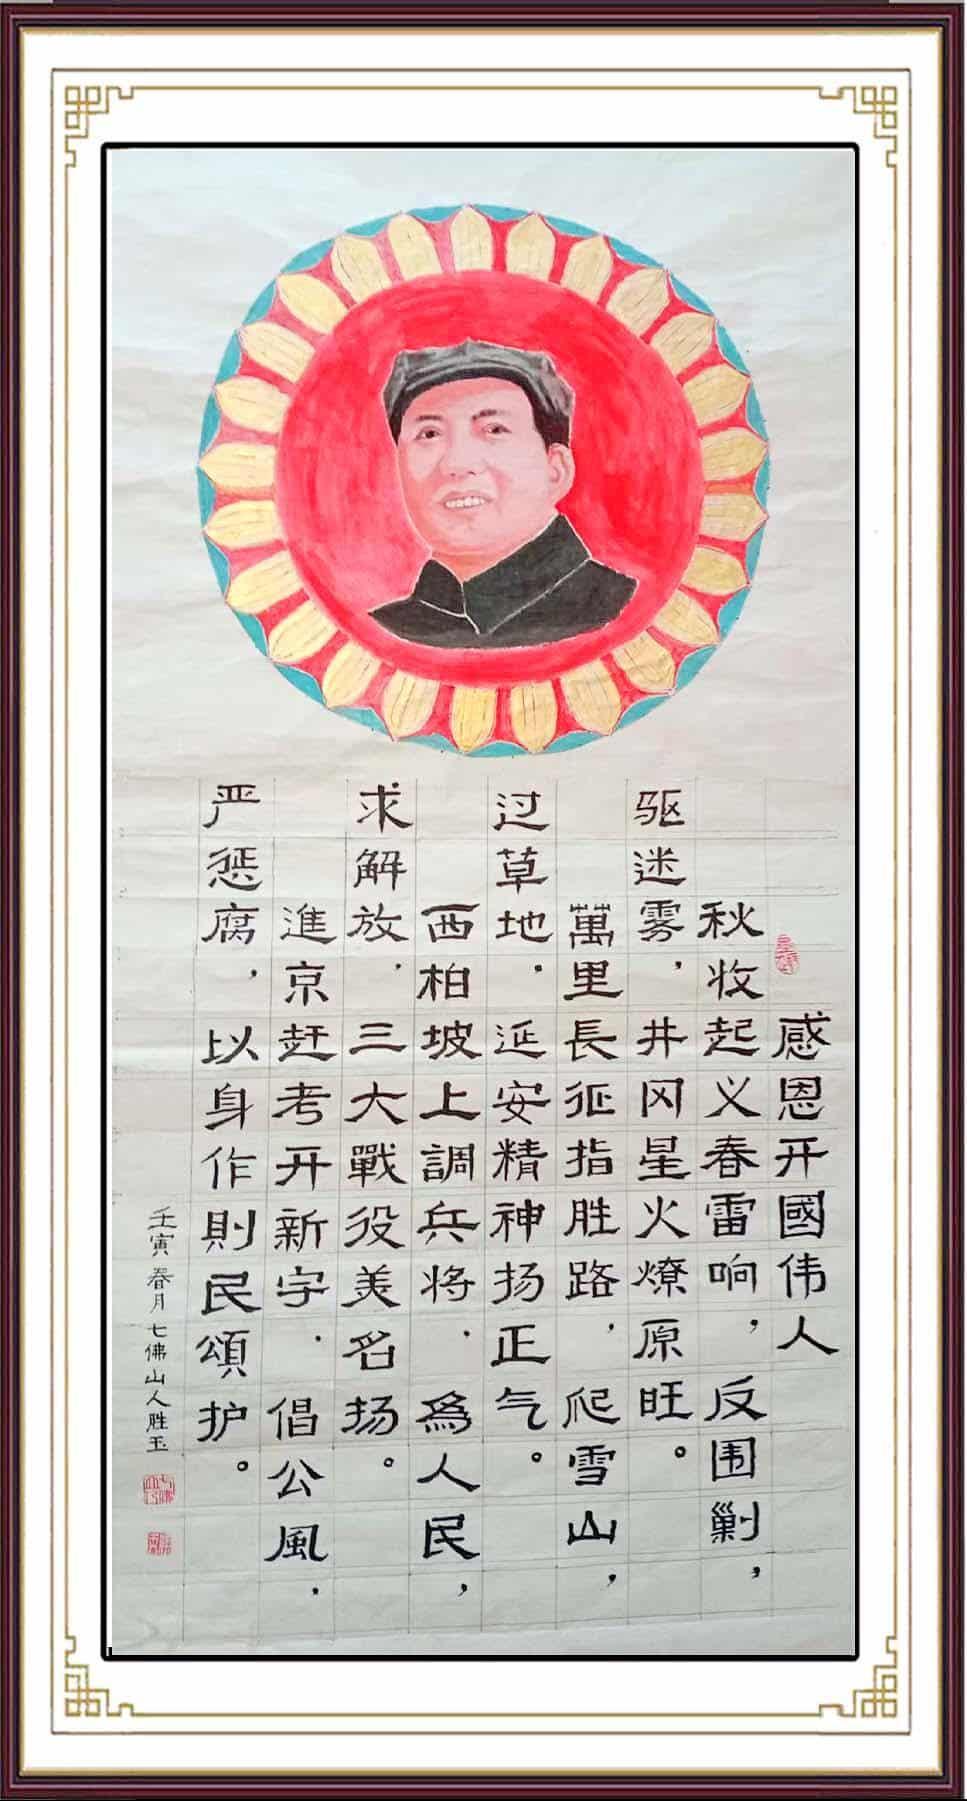 感恩开國伟人
秋收起义春雷响，反围剿，
驱迷雾，井冈星火燎原旺。
萬里長征指胜路，爬雪山，
过草地．延安精神扬正气。
西柏坡上調兵将．為人民，
求解放．三大戰役美名扬。
進京赶考开新字．倡公風，
严惩腐，以身作則民頌护。
壬寅春月七佛山人胜玉